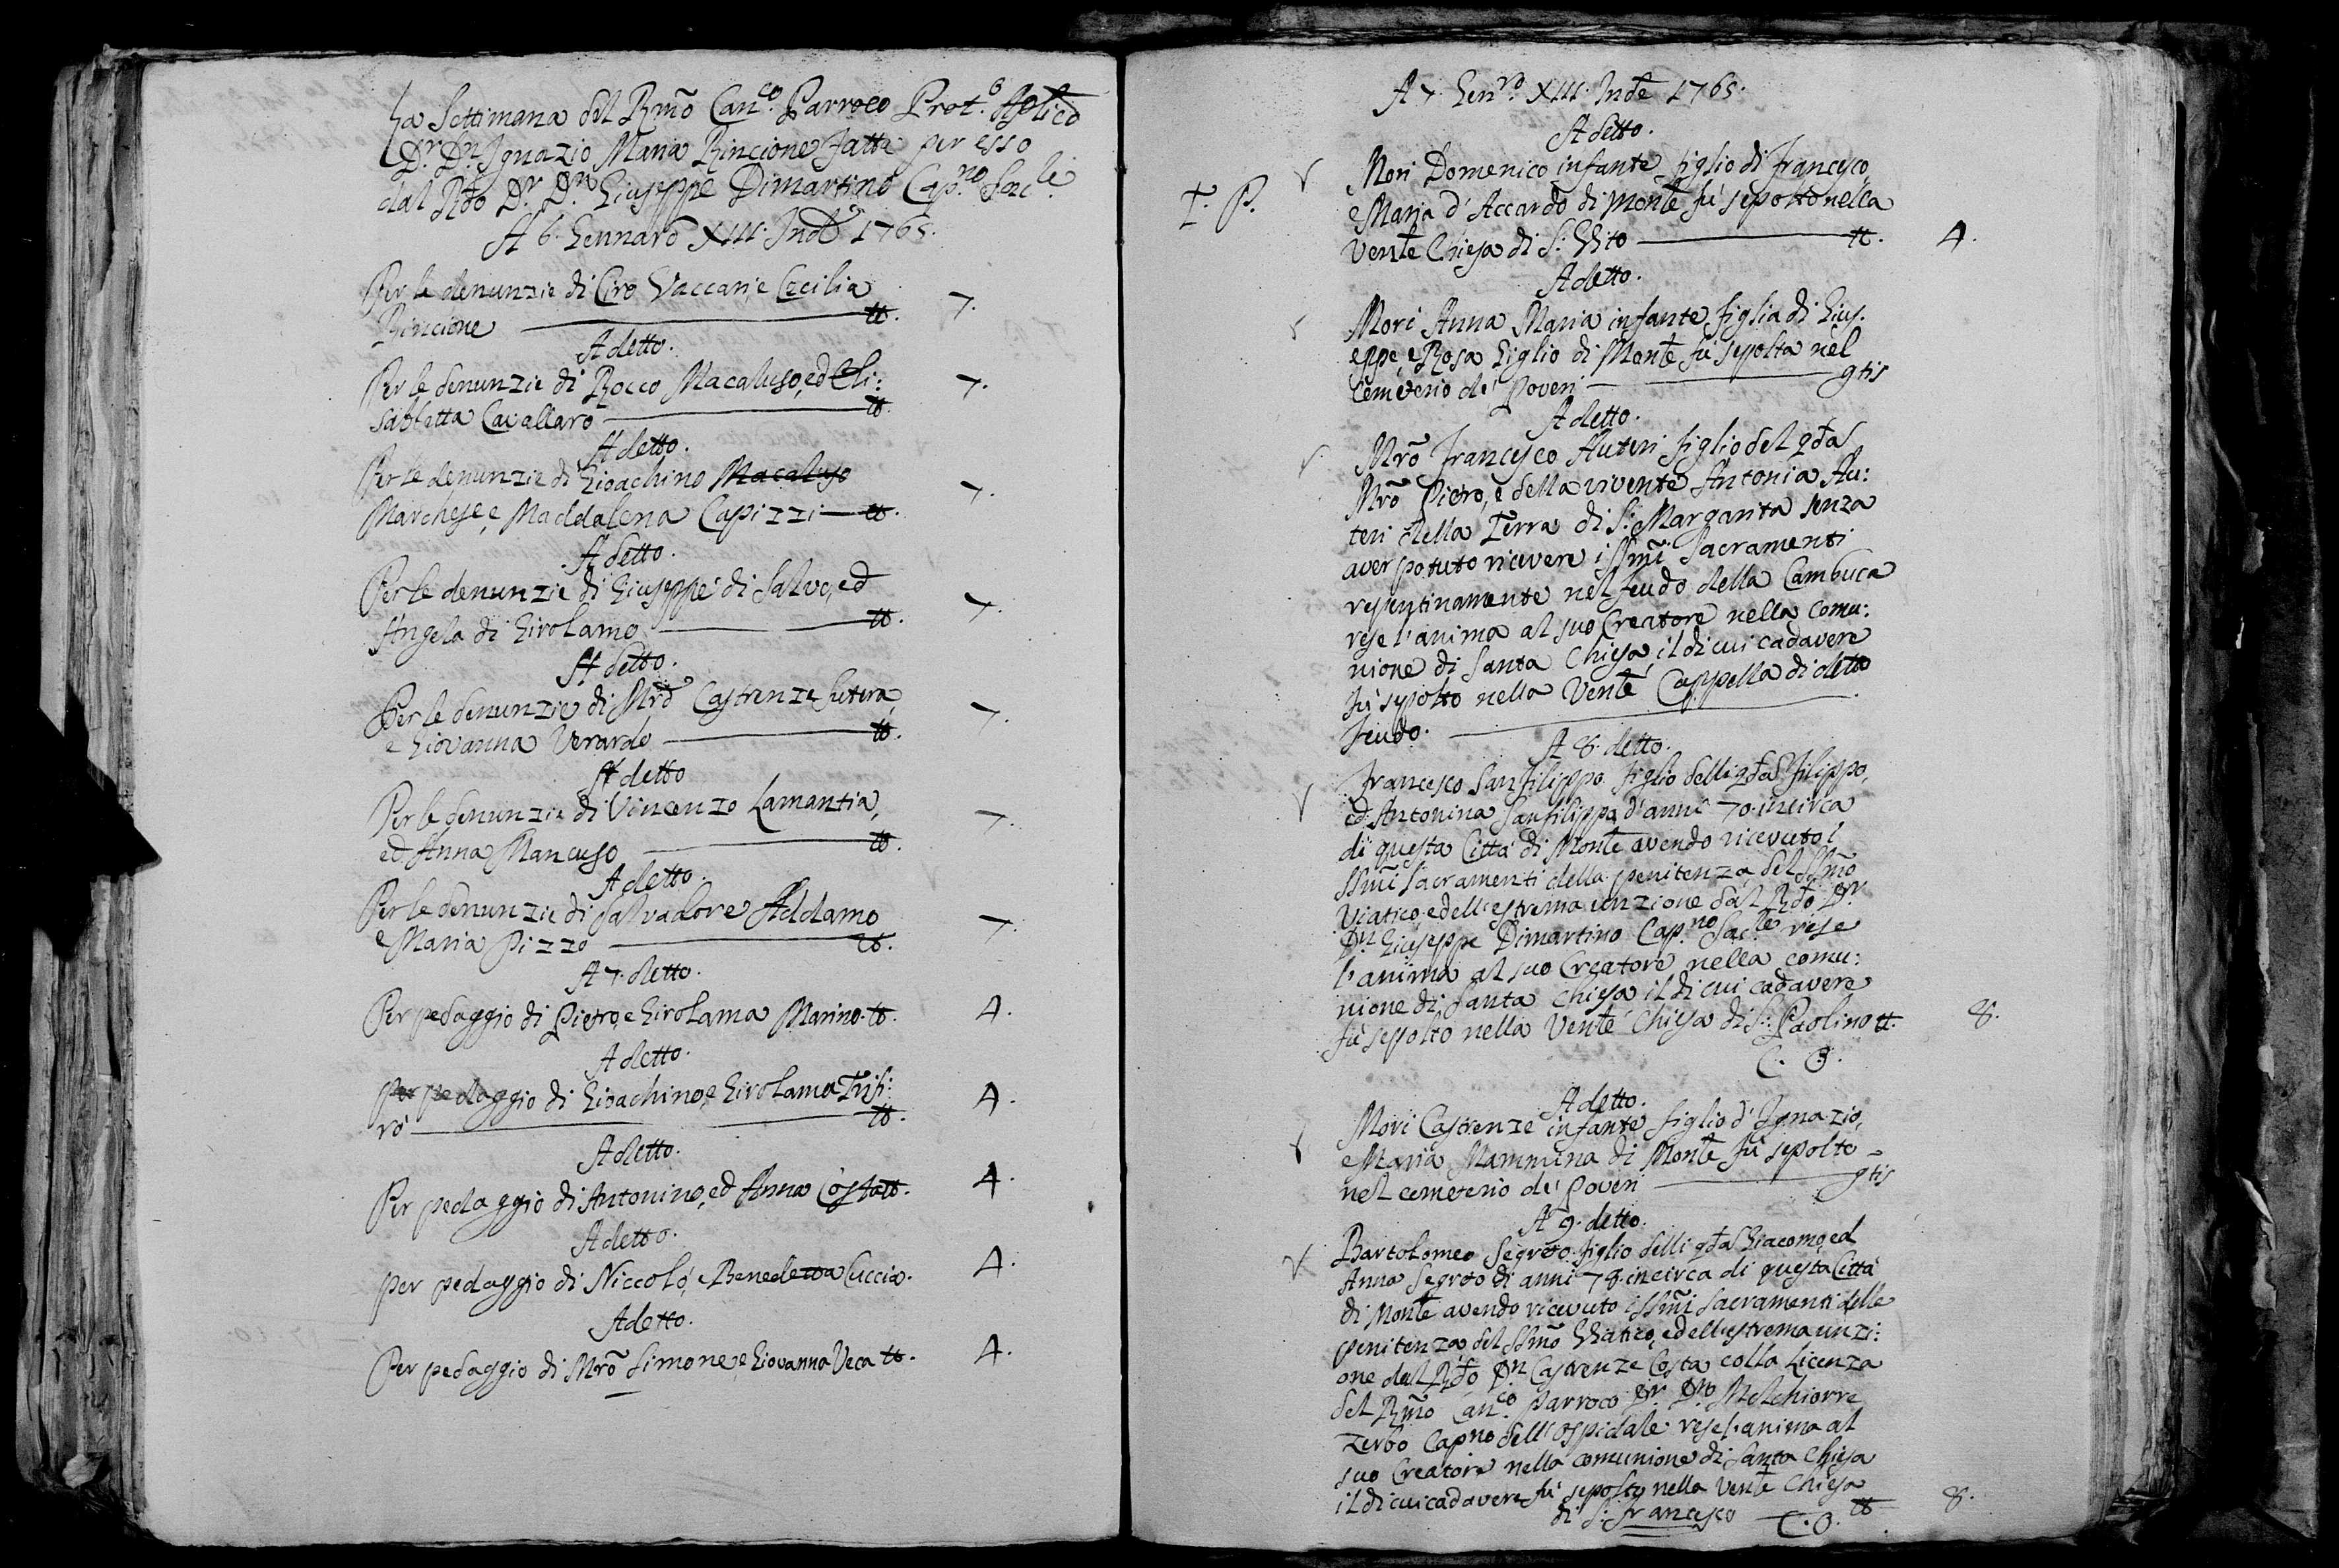 La Settimana del Rmo Can.co Parroco Prot.o Aplico
Dr. Dn. Ignazio Maria Rincione fatta per esso
dal Rdo Dr. Dn. Giuseppe Dimartino Cap.no Sac.le
A 6. Gennaro XIII. Inde 1765.
Per le denunzie di Ciro Vaccari, e Cecilia
Rincione tt. 7.
A detto.
Per le denunzie di Rocco Macaluso, ed Eli:
sabetta Cavallaro tt. 7.
A detto.
Per le denunzie di Gioachino Macaluso
Marchese, e Maddalena Capizzi tt. 7.
A detto.
Per le denunzie di Giuseppe di Salvo, ed
Angela di Girolamo tt. 7.
A detto.
Per le denunzie di Mro Castrenze Sutera,
e Giovanna Verardo tt. 7.
A detto
Per le denunzie di Vincenzo Lamantia,
ed Anna Mancuso tt. 7.
A detto.
Per le denunzie di Salvadore Addamo
e Maria Pizzo tt. 7.
A 7. detto.
Per pedaggio di Pietro, e Girolama Marino. tt. 4.
A detto.
Per pedaggio di Gioachino, e Girolama Trifi:
rò tt. 4.
A detto.
Per pedaggio di Antonino, ed Anna Costa tt. 4.
A detto.
per pedaggio di Niccolò, e Benedetta Cuccia. 4.
A detto.
Per pedaggio di Mro Simone, e Giovanna Veca tt. 4.
A 7. Genro. XIII. Inde 1765.
A detto.
T. P. Morì Domenico infante figlio di Francesco,
e Maria d'Accardo di Monle fù sepolto nella
Venle Chiesa di S. Vito tt. 4.
A detto.
Morì Anna Maria infante figlia di Gius.
eppe, e Rosa Giglio di Monle fù sepolta nel
Cemeterio de' Poveri gtis
A detto.
Mro Francesco Auteri figlio del qdas
Mro Pietro, e della vivente Antonia Au:
teri della Terra di S. Margarita senza
aver potuto ricevere i SSmi Sacramenti
repentinamente nel feudo della Cambuca
rese l'anima al suo Creatore nella comu:
nione di Santa Chiesa il di cui cadavere
fù sepolto nella Venle Cappella di detto
feudo.
A 8. detto.
Francesco Sanfilippo figlio delli qdas Filippo,
ed Antonina Sanfilippo d'anni 70. incirca
di questa Città di Monle avendo ricevuto i
SSmi Sacramenti della penitenza del SSmo
Viatico, e dell'estrema unzione dal Rdo Dr.
Dn. Giuseppe Dimartino Cap.no Sac.le rese
l'anima al suo Creatore nella comu:
nione di Santa Chiesa il di cui cadavere
fù sepolto nella Venle Chiesa di S. Paolino tt. 8.
C. O.
A detto.
Morì Castrenze infante figlio d'Ignazio,
e Maria Mammina di Monle fù sepolto
nel cemeterio de' Poveri gtis
A 9. detto.
Bartolomeo Segreto figlio delli qdas Giacomo, ed
Anna Segreto di anni 78. incirca di questa Città
di Monle avendo ricevuto i SSmi Sacramenti della
penitenza, del SSmo Viatico, e dell'estrema unzi:
one dal Rdo Dn. Castrenze Costa colla Licenza
del Rmo Can.co Parroco Dr. Dn. Melchiorre
Zerbo Capno dell'Ospidale rese l'anima al
suo Creatore nella comunione di Santa Chiesa
il di cui cadavere fù sepolto nella Venle Chiesa
di S. Francesco C. O. tt 8.